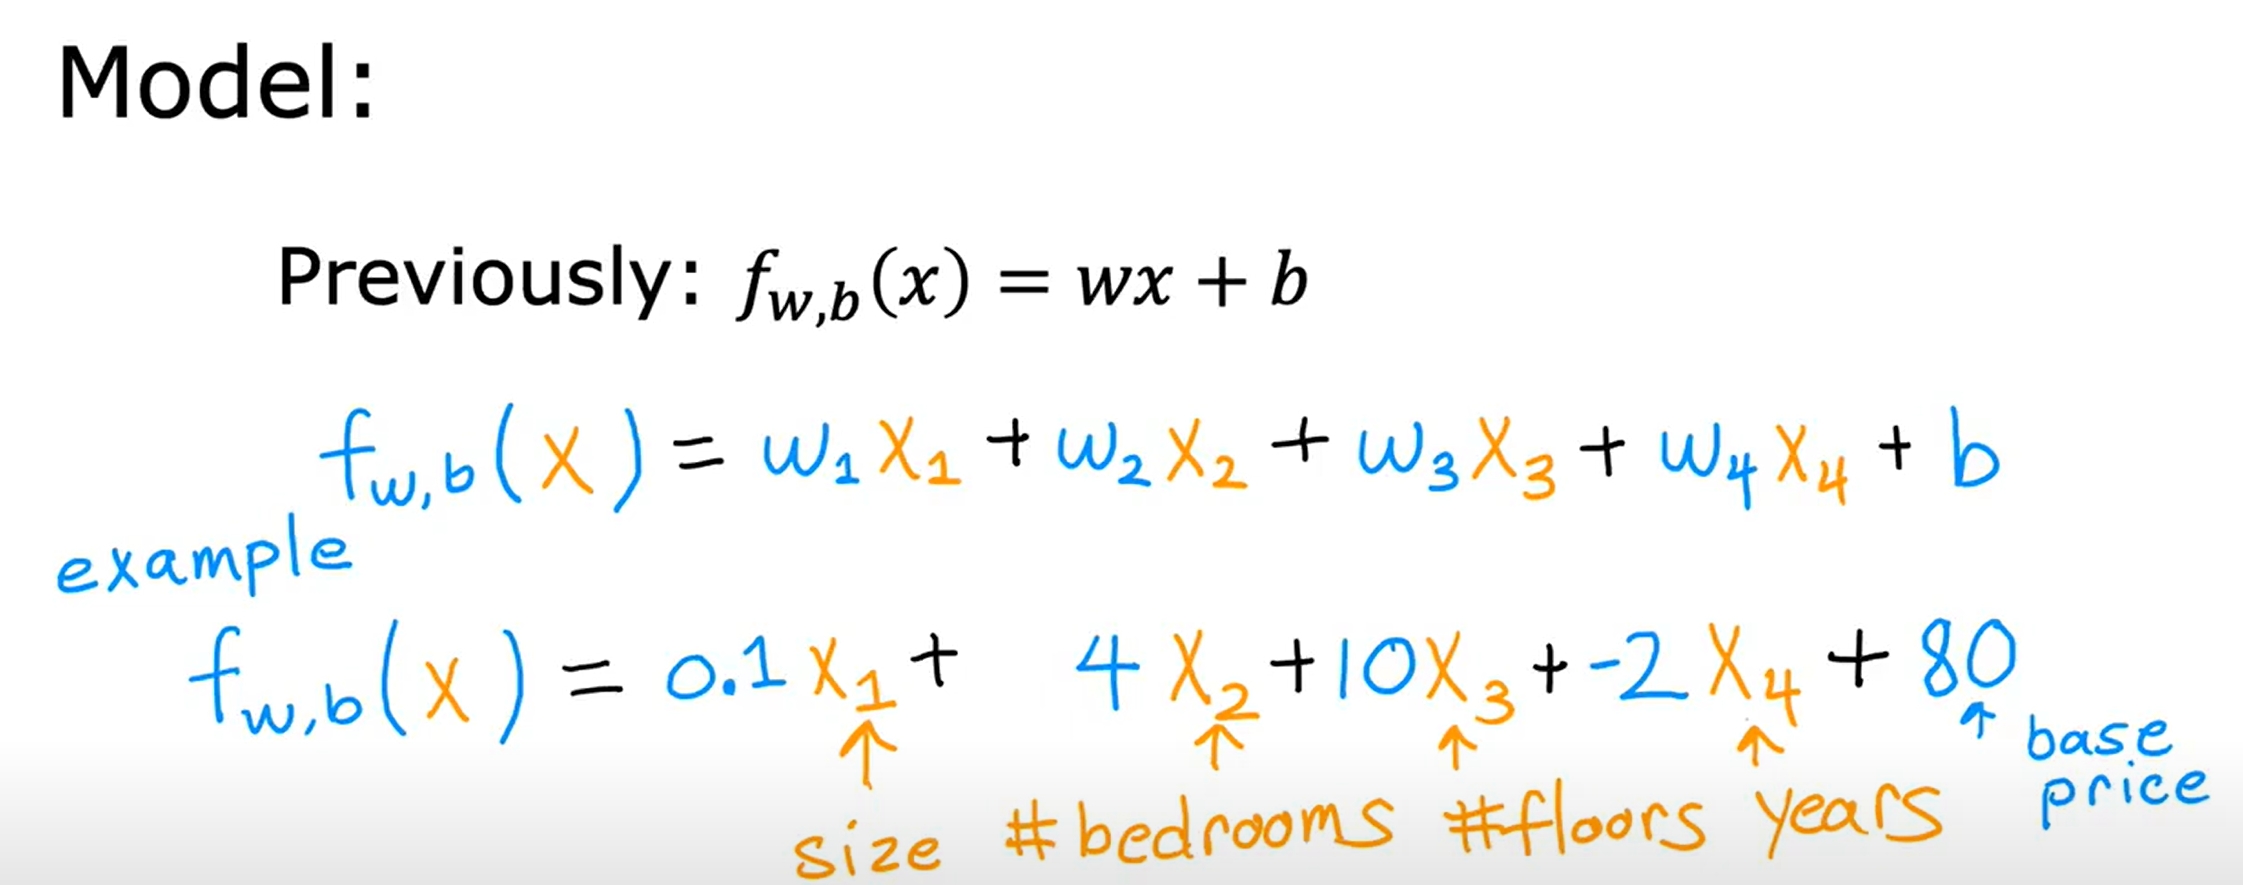 Model:
Previously: f_{w,b}(x) = wx + b
f_{w,b}(x) = w_1 x_1 + w_2 x_2 + w_3 x_3 + w_4 x_4 + b
example
f_{w,b}(x) = 0.1 x_1 + 4 x_2 + 10 x_3 + -2 x_4 + 80
↑ ↑ ↑ ↑ ↑ base
price
size #bedrooms #floors years